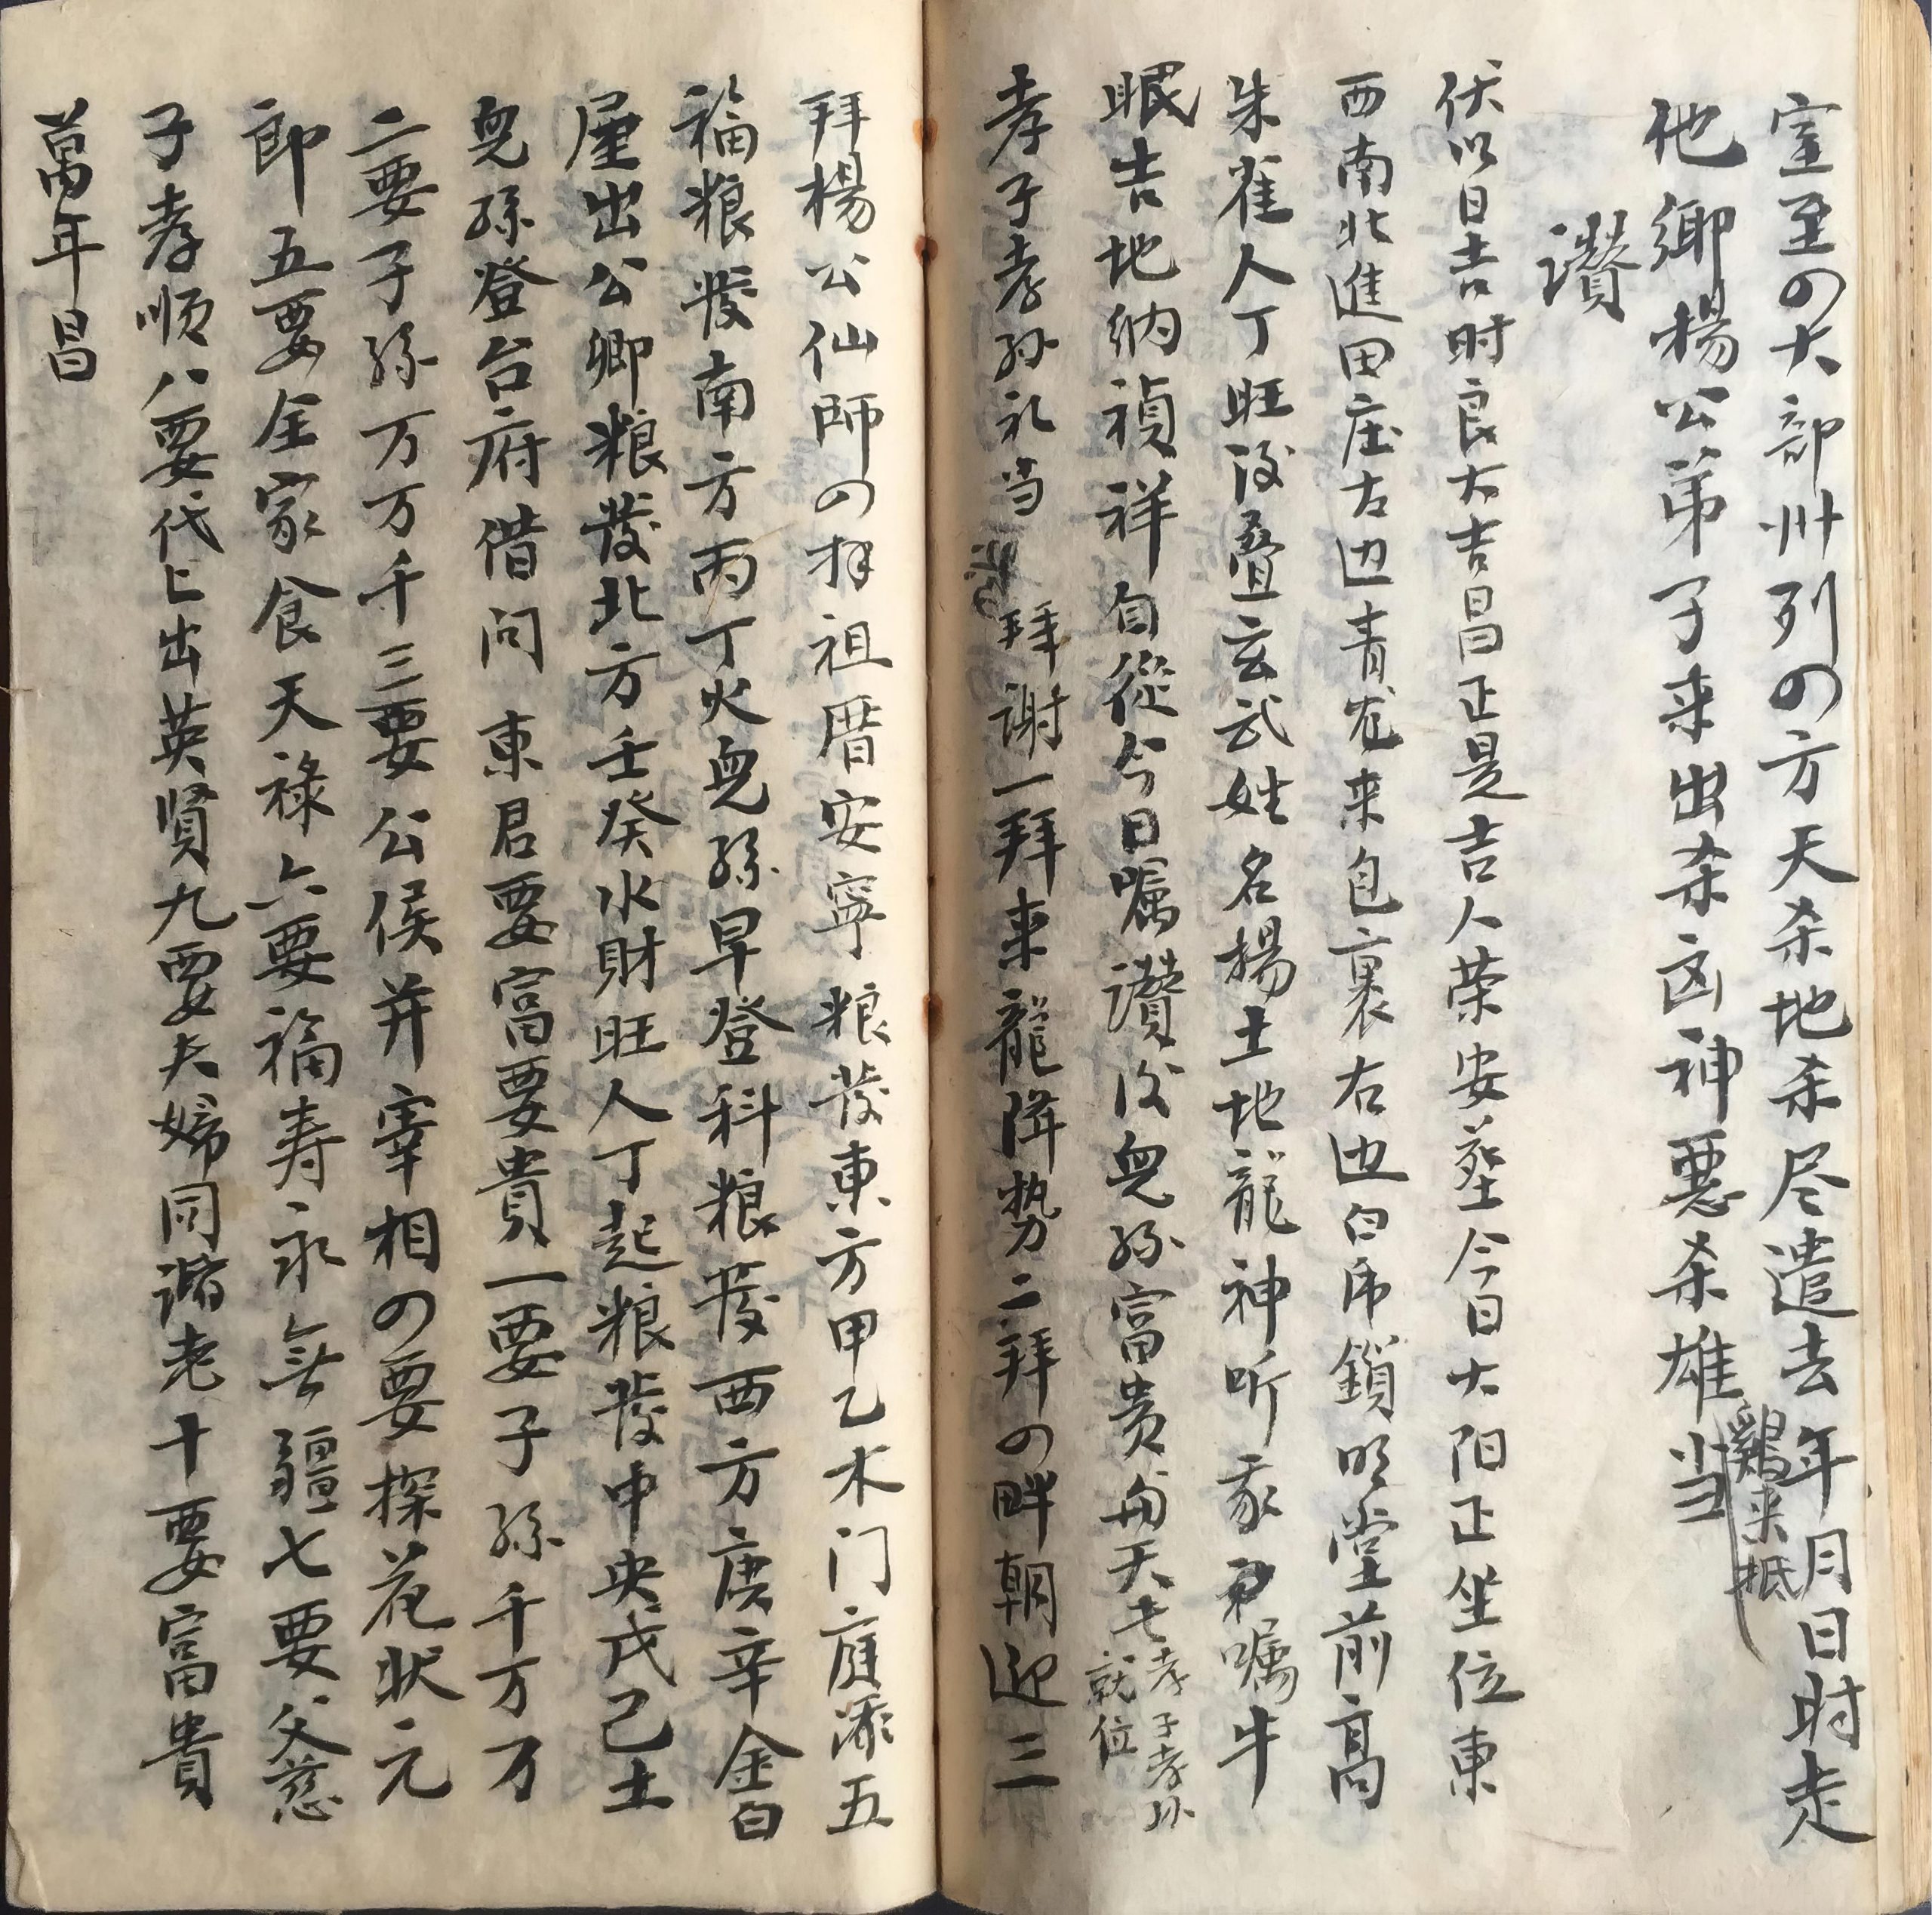 室至の大部州列の方天杀地杀尽遣去年月日时走
他鄉楊公弟子来出杀凶神悪杀雄当
鷄来抵
讚
伏以日吉时良大吉昌正是吉人荣安莝今日太阳正坐位東
西南北進田庄左边青龙来包裹右边白虎鎖明堂前高
朱雀人丁旺後叠玄武姓名揚土地龍神听我嘱牛
眠吉地納禎祥自從今日嘱讚後兒孫富贵与天七
孝子孝孙
就位
孝子孝孙礼当拜谢一拜来龍降势二拜の畔朝迎三
拜楊公仙師の拜祖厝安寧粮發東方甲乙木门庭添五
福粮發南方丙丁火兒孫早登科粮發西方庚辛金白
屋出公卿粮發北方壬癸水財旺人丁起粮發中央戊己土
兒孫登台府借问東君要富要貴一要子孫千万万
二要子孫万万千三要公侯并宰相の要探花状元
郎五要全家食天祿六要福寿永無疆七要父慈
子孝顺八要代上出英賢九要夫婦同諧老十要富貴
萬年昌